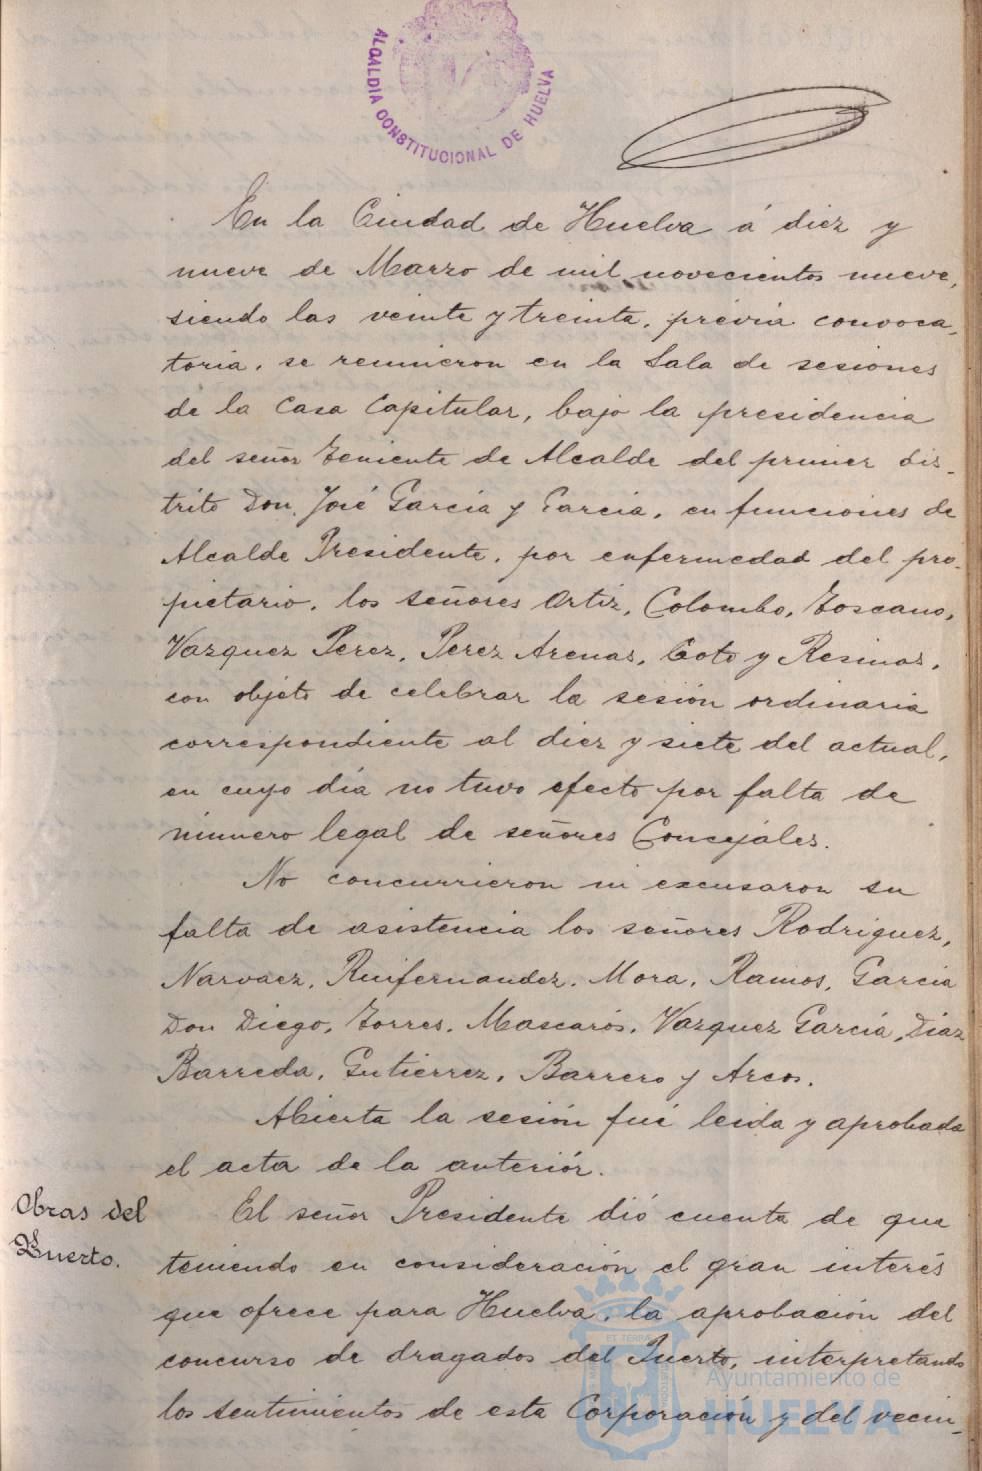 ALCALDIA CONSTITUCIONAL DE HUELVA
En la Ciudad de Huelva á diez y
nueve de Marzo de mil novecientos nueve,
siendo las veinte y treinta, prévia convoca-
toria, se reunieron en la Sala de sesiones
de la Casa Capitular, bajo la presidencia
del señor Teniente de Alcalde del primer dis-
trito Don José García y García, en funciones de
Alcalde Presidente, por enfermedad del pro-
pietario, los señores Ortiz, Colombo, Toscano,
Vazquez Perez, Perez Arenas, Coto y Resinas,
con objeto de celebrar la sesión ordinaria
correspondiente al diez y siete del actual,
en cuyo día no tuvo efecto por falta de
número legal de señores Concejales.
No concurrieron ni excusaron su
falta de asistencia los señores Rodriguez,
Narvaez, Ruifernandez, Mora, Ramos, Garcia
Don Diego, Torres, Mascarós, Vazquez García, Diaz
Barreda, Gutierrez, Barrero y Arcos.
Abierta la sesión fué leida y aprobada
el acta de la anteriór.
Obras del
Puerto.
El señor Presidente dió cuenta de que
teniendo en consideración el gran interés
que ofrece para Huelva, la aprobación del
concurso de dragados del Puerto, interpretando
los sentimientos de esta Corporación y del vecin-
Ayuntamiento de
HUELVA